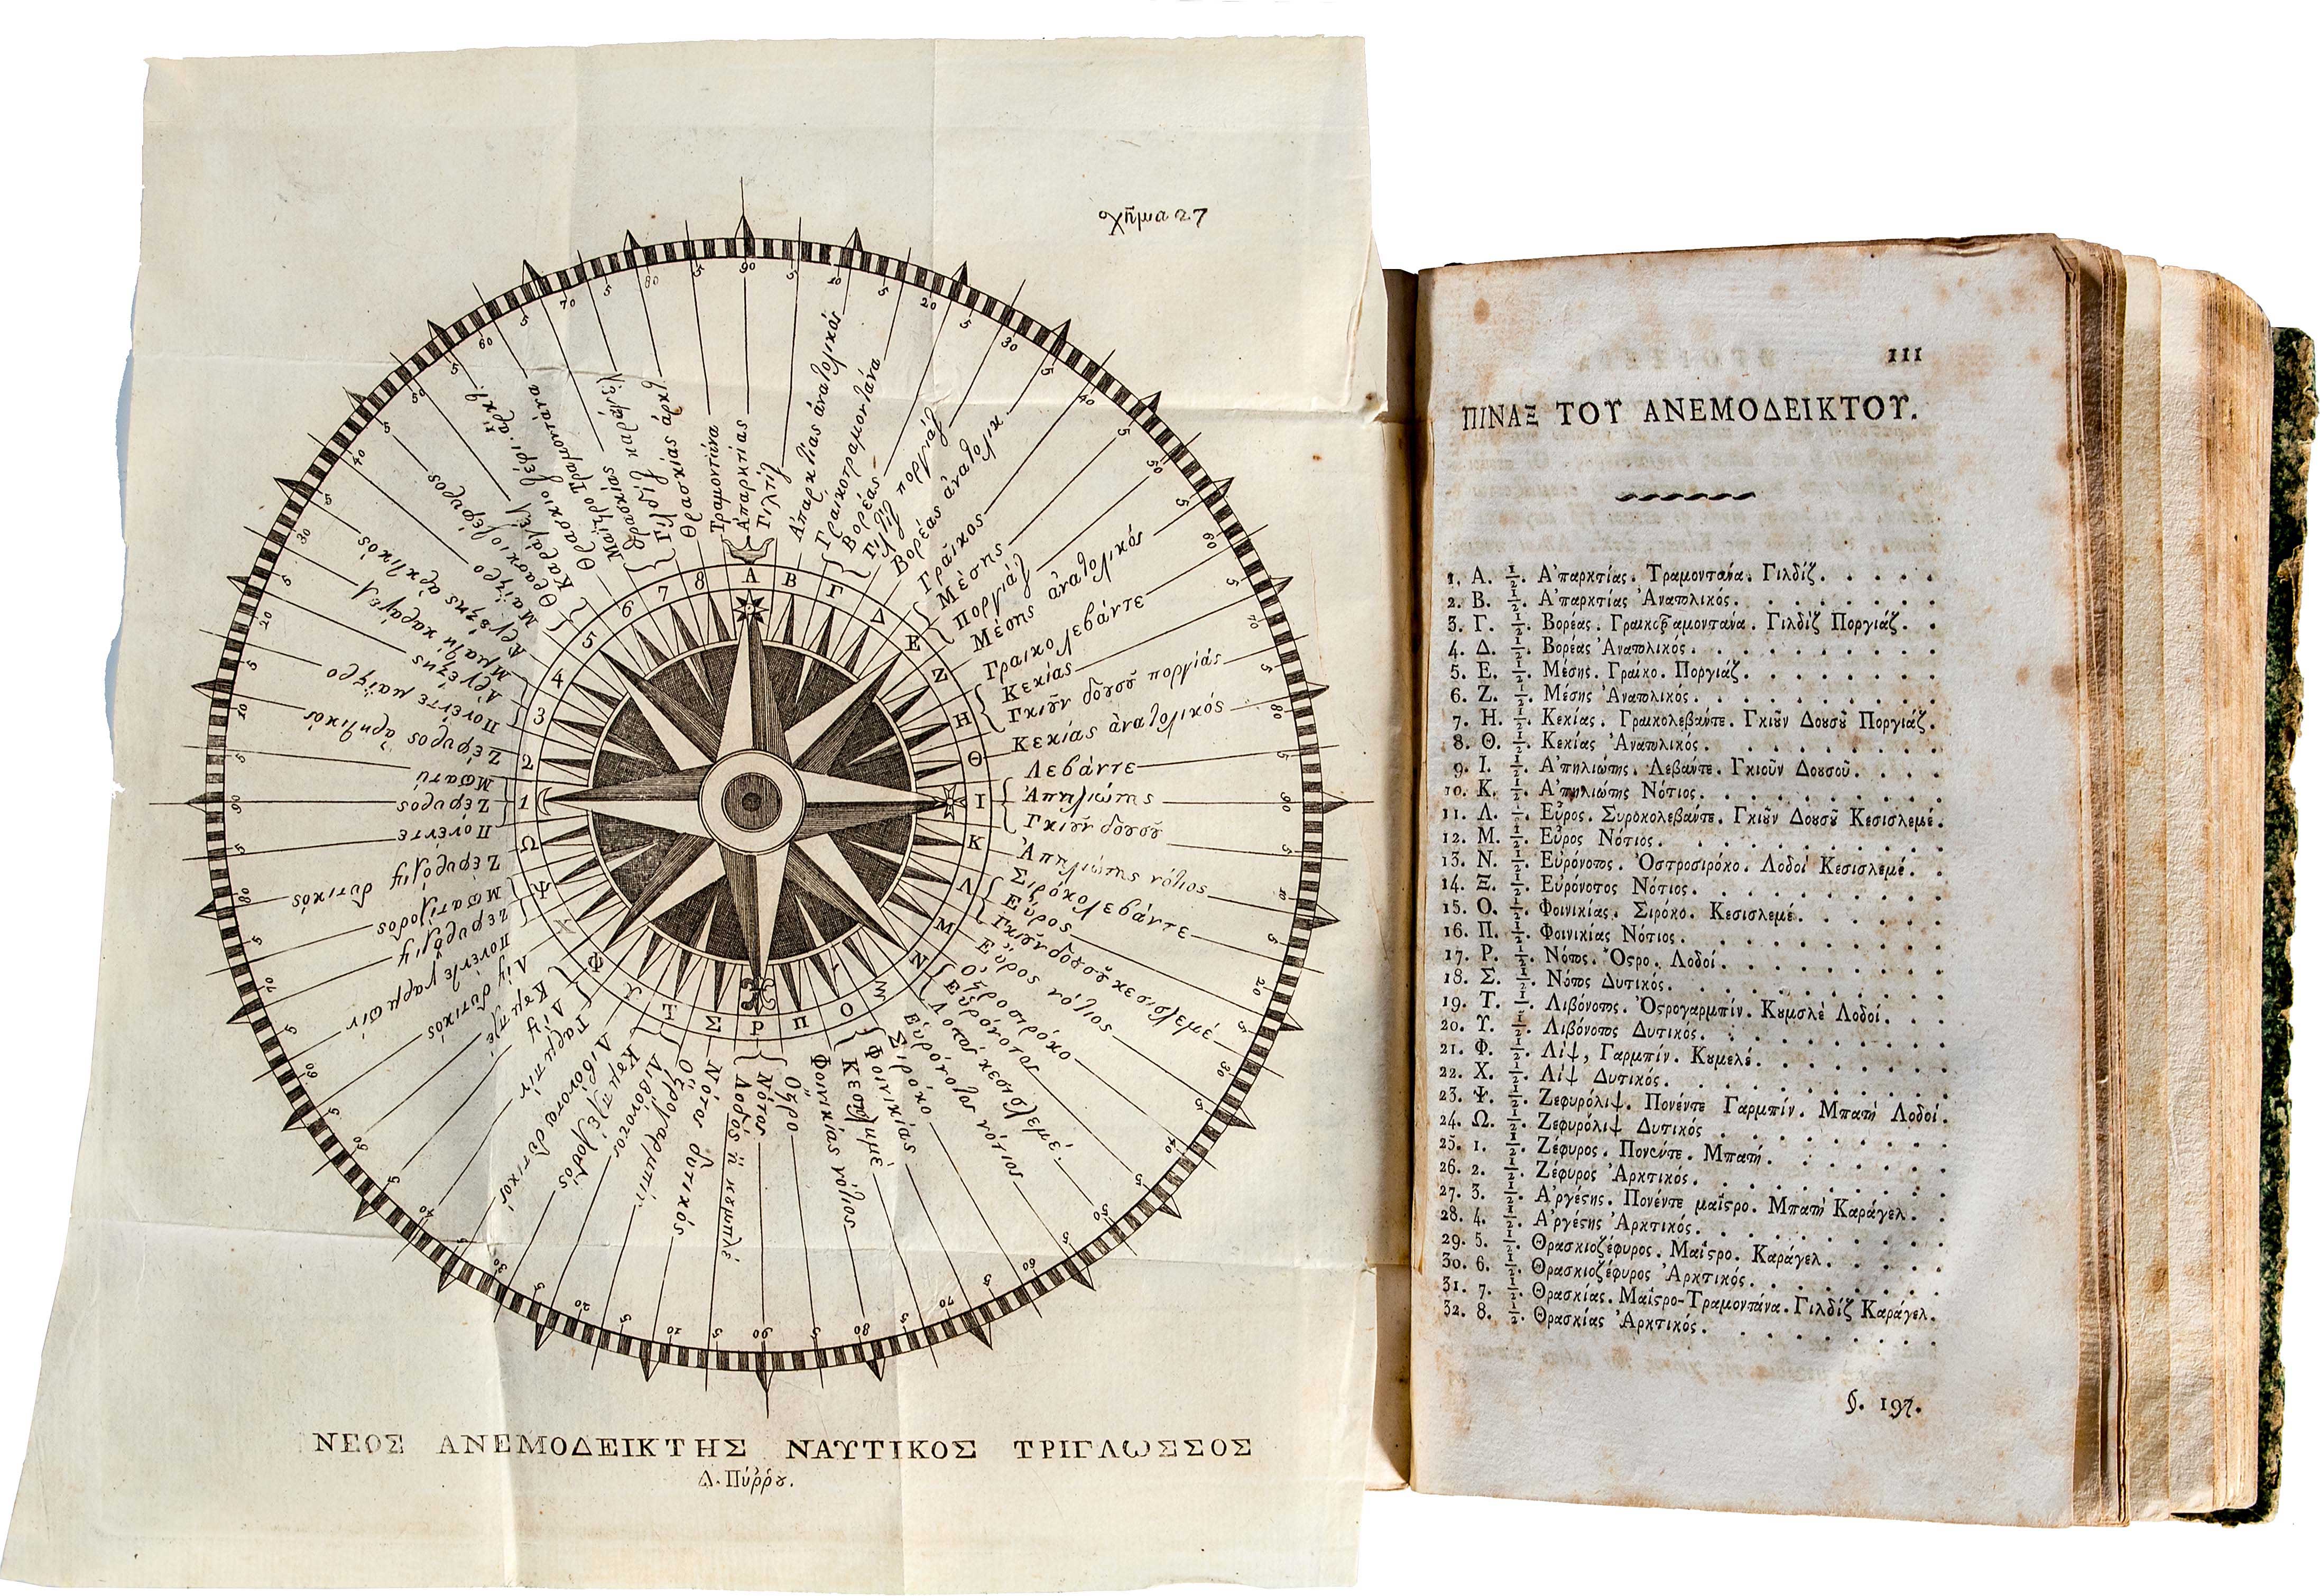 σχῆμα 27
Τραμοντάνα
Ἀπαρκτίας
Γιλτίζ
Ἀπαρκτίας ἀνατολικός
Γραικοτραμοντάνα
Βορέας
Γιλτίζ ποργιάζ
Βορέας ἀνατολικ
Γραῖκος
Μέσης
Ποργιάζ
Μέσης ἀνατολικός
Γραικολεβάντε
Κεκίας
Γκιȣν δȣσȣ ποργιάς
Κεκίας ἀνατολικός
Λεβάντε
Ἀπηλιώτης
Γκιȣν δȣσȣ
Ἀπηλιώτης νότιος
Σιρόκολεβάντε
Εὖρος
Γκιȣνδȣσȣ κεσισλεμέ
Εὖρος νότιος
Ὀςροσιρόκο
Εὐρόνοτος
Εὐρόνοτος νότιος
Σιρόκο
Φοινικίας
Φοινικίας νότιος
Ὄςρο
Νότος
Νότος δυτικός
Ὀςρογαρμπίν
Λιβόνοτος
Γαρμπίν
Λίψ
Λίψ δυτικός
Πονέντε γαρμπίν
Ζεφυρόλιψ
Ζεφυρόλιψ δυτικός
Πονέντε
Ζέφυρος
Μπατύ
Ζέφυρος ἀρκτικός
Πονέντε μαΐςρο
Ἀργέςης
Μπατὶ καράγελ
Ἀργέςης ἀρκτικός
Μαΐςρο
Θρασκιοζέφυρος
Καράγελ
Μαΐςρο Τραμοντάνα
Θρασκίας
Γιλδίζ καράγελ
Θρασκίας ἀρκτι
Α Β Γ Δ Ε Ζ Η Θ Ι Κ Λ Μ Ν Ξ Ο Π Ρ Σ Τ Υ Φ Χ Ψ Ω 1 2 3 4 5 6 7 8
ΝΕΟΣ ΑΝΕΜΟΔΕΙΚΤΗΣ ΝΑΥΤΙΚΟΣ ΤΡΙΓΛΩΣΣΟΣ
Δ. Πύῤῥȣ.
111
ΠΙΝΑΞ ΤΟΥ ΑΝΕΜΟΔΕΙΚΤΟΥ.
1. Α. ½. Ἀπαρκτίας. Τραμοντάνα. Γιλδίζ. . . . .
2. Β. ½. Ἀπαρκτίας Ἀνατολικός. . . . . . . .
3. Γ. ½. Βορέας. Γραικοτραμοντάνα. Γιλδίζ Ποργιάζ. .
4. Δ. ½. Βορέας Ἀνατολικός. . . . . . . . .
5. Ε. ½. Μέσης. Γραίκο. Ποργιάζ. . . . . . .
6. Ζ. ½. Μέσης Ἀνατολικός. . . . . . . . .
7. Η. ½. Κεκίας. Γραικολεβάντε. Γκιȣν Δουσȣ Ποργιάζ.
8. Θ. ½. Κεκίας Ἀνατολικός. . . . . . . . .
9. Ι. ½. Ἀπηλιώτης. Λεβάντε. Γκιοῦν Δουσοῦ. . . .
10. Κ. ½. Ἀπηλιώτης Νότιος. . . . . . . . .
11. Λ. ½. Εὖρος. Συροκολεβάντε. Γκιȣν Δουσȣ Κεσισλεμέ.
12. Μ. ½. Εὖρος Νότιος. . . . . . . . . .
13. Ν. ½. Εὐρόνοτος. Ὀστροσιρόκο. Λοδοί Κεσισλεμέ. .
14. Ξ. ½. Εὐρόνοτος Νότιος. . . . . . . . .
15. Ο. ½. Φοινικίας. Σιρόκο. Κεσισλεμέ. . . . . .
16. Π. ½. Φοινικίας Νότιος. . . . . . . . .
17. Ρ. ½. Νότος. Ὄςρο. Λοδοί. . . . . . . .
18. Σ. ½. Νότος Δυτικός. . . . . . . . . .
19. Τ. ½. Λιβόνοτος. Ὀςρογαρμπίν. Κȣμσλὲ Λοδοί. . .
20. Υ. ½. Λιβόνοτος Δυτικός. . . . . . . . .
21. Φ. ½. Λίψ, Γαρμπίν. Κȣμελέ. . . . . . .
22. Χ. ½. Λίψ Δυτικός. . . . . . . . . .
23. Ψ. ½. Ζεφυρόλιψ. Πονέντε Γαρμπίν. Μπατὴ Λοδοί.
24. Ω. ½. Ζεφυρόλιψ Δυτικός . . . . . . . .
25. 1. ½. Ζέφυρος. Πονέντε. Μπατή. . . . . . .
26. 2. ½. Ζέφυρος Ἀρκτικός. . . . . . . . .
27. 3. ½. Ἀργέςης. Πονέντε μαΐςρο. Μπατὴ Καράγελ. .
28. 4. ½. Ἀργέςης Ἀρκτικός. . . . . . . . .
29. 5. ½. Θρασκιοζέφυρος. Μαΐςρο. Καράγελ. . . . .
30. 6. ½. Θρασκιοζέφυρος Ἀρκτικός. . . . . . .
31. 7. ½. Θρασκίας. Μαΐςρο-Τραμοντάνα. Γιλδίζ Καράγελ.
32. 8. ½. Θρασκίας Ἀρκτικός. . . . . . . . .
§. 197.